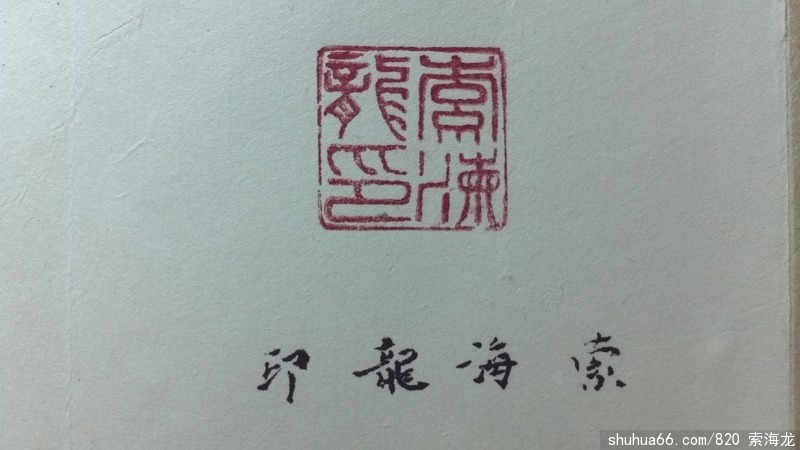 索海
龍印
索海龍印
shuhua66.com/820 索海龙